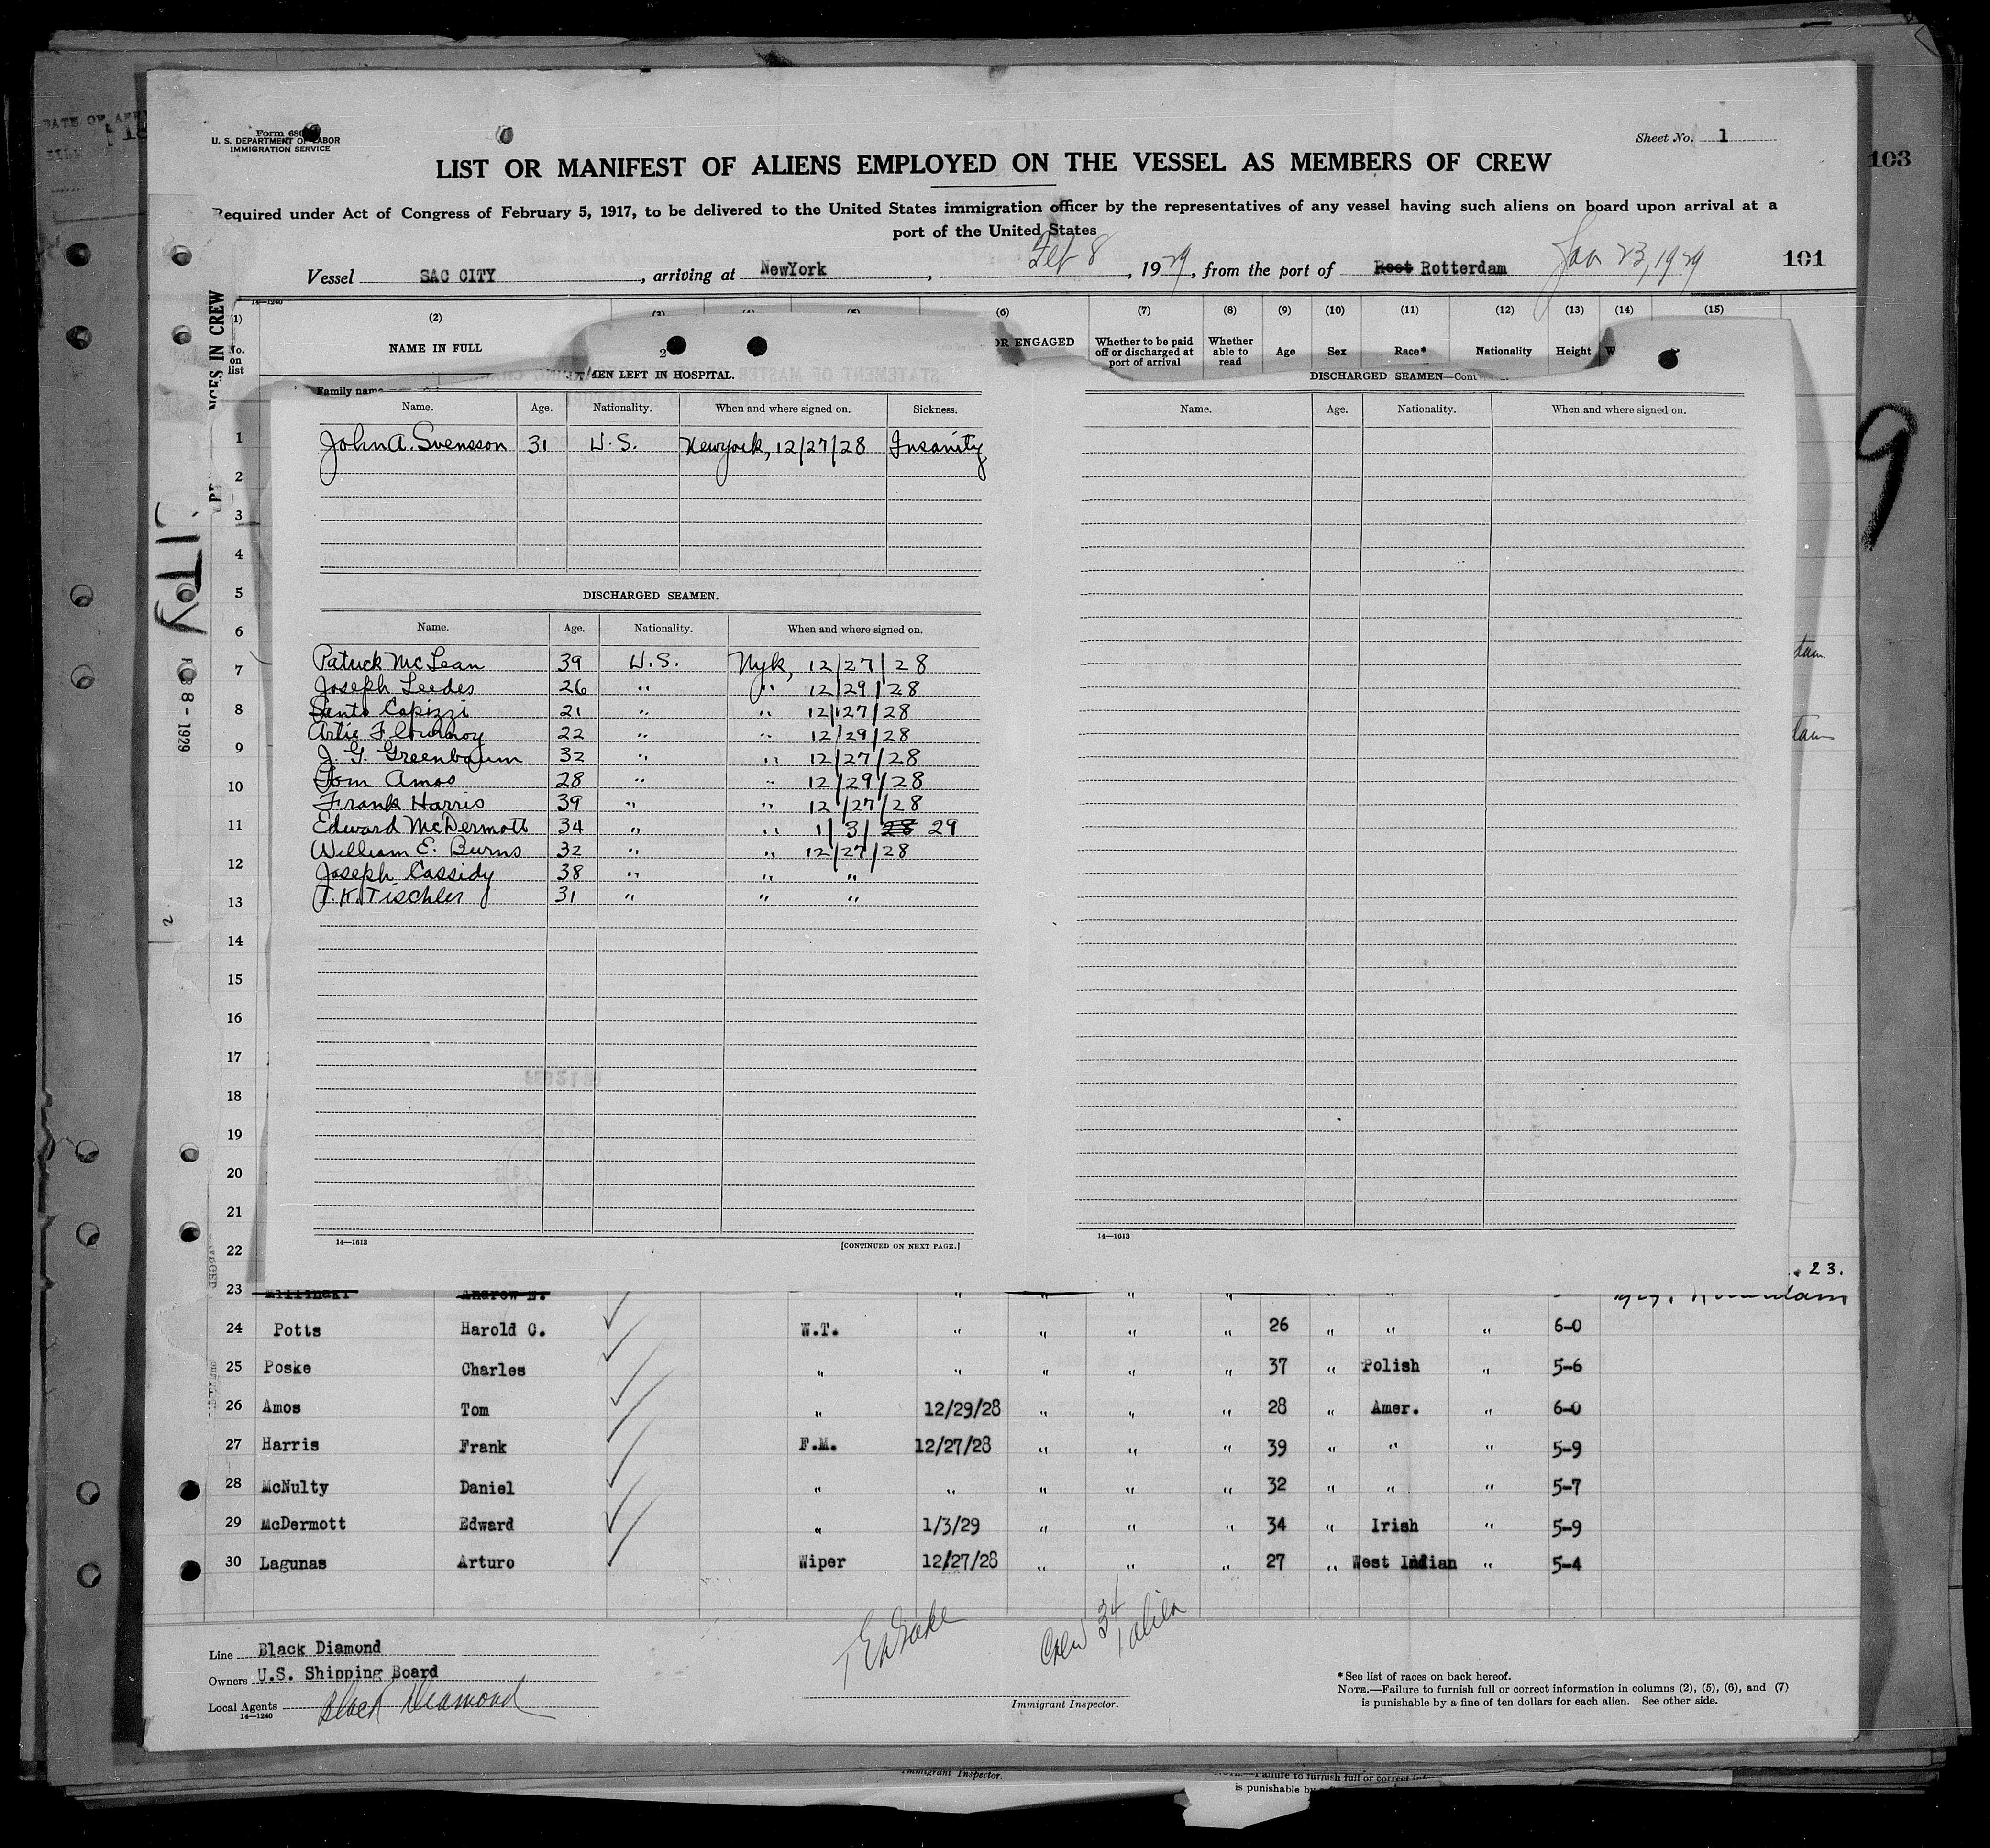 DATE OF
Form 680
U. S. DEPARTMENT OF LABOR
IMMIGRATION SERVICE
Sheet No. 1
103
LIST OR MANIFEST OF ALIENS EMPLOYED ON THE VESSEL AS MEMBERS OF CREW
Required under Act of Congress of February 5, 1917, to be delivered to the United States immigration officer by the representatives of any vessel having such aliens on board upon arrival at a
port of the United States
Vessel SAC CITY, arriving at NewYork, Feb 8, 1929, from the port of Root Rotterdam Jan 23, 1929 101
14—1240
(1) (2) (3) (4) (5) (6) (7) (8) (9) (10) (11) (12) (13) (14) (15)
No. on list NAME IN FULL OR ENGAGED Whether to be paid off or discharged at port of arrival Whether able to read Age Sex Race* Nationality Height W
Family name
2
MEN LEFT IN HOSPITAL.
Name. Age. Nationality. When and where signed on. Sickness.
John A. Svensson 31 U.S. Newyork, 12/27/28 Insanity
DISCHARGED SEAMEN.
Name. Age. Nationality. When and where signed on.
Patrick McLean 39 U.S. Nyk, 12/27/28
Joseph Leedes 26 " " 12/29/28
Santo Capizzi 21 " " 12/27/28
Artie 22 " " 12/29/28
J. G. Greenbaum 32 " " 12/27/28
Tom Amos 28 " " 12/29/28
Frank Harris 39 " " 12/27/28
Edward McDermott 34 " " 1/3/28 29
William E. Burns 32 " " 12/27/28
Joseph Cassidy 38 " " "
T. K. Tischler 31 " " "
14—1613 [CONTINUED ON NEXT PAGE.]
DISCHARGED SEAMEN—Con
Name. Age. Nationality. When and where signed on.
14—1613
NCES IN CREW
CITY
8 - 1929
2
9
dam
dam
1
2
3
4
5
6
7
8
9
10
11
12
13
14
15
16
17
18
19
20
21
22
23.
23 Andrew E. " " " "
24 Potts Harold C. W.T. " " " " 26 " " " 6-0
25 Poske Charles " " " " " 37 " Polish " 5-6
26 Amos Tom " 12/29/28 " " " 28 " Amer. " 6-0
27 Harris Frank F.M. 12/27/28 " " " 39 " " " 5-9
28 McNulty Daniel " " " " " 32 " " " 5-7
29 McDermott Edward " 1/3/29 " " " 34 " Irish " 5-9
30 Lagunas Arturo Wiper 12/27/28 " " " 27 " West Indian " 5-4
Line Black Diamond
Owners U.S. Shipping Board
Local Agents Black Diamond
14—1240
Crew 34
1 alien
Immigrant Inspector.
*See list of races on back hereof.
NOTE.—Failure to furnish full or correct information in columns (2), (5), (6), and (7)
is punishable by a fine of ten dollars for each alien. See other side.
Immigrant Inspector.
NOTE.—Failure to furnish full or correct
is punishable by